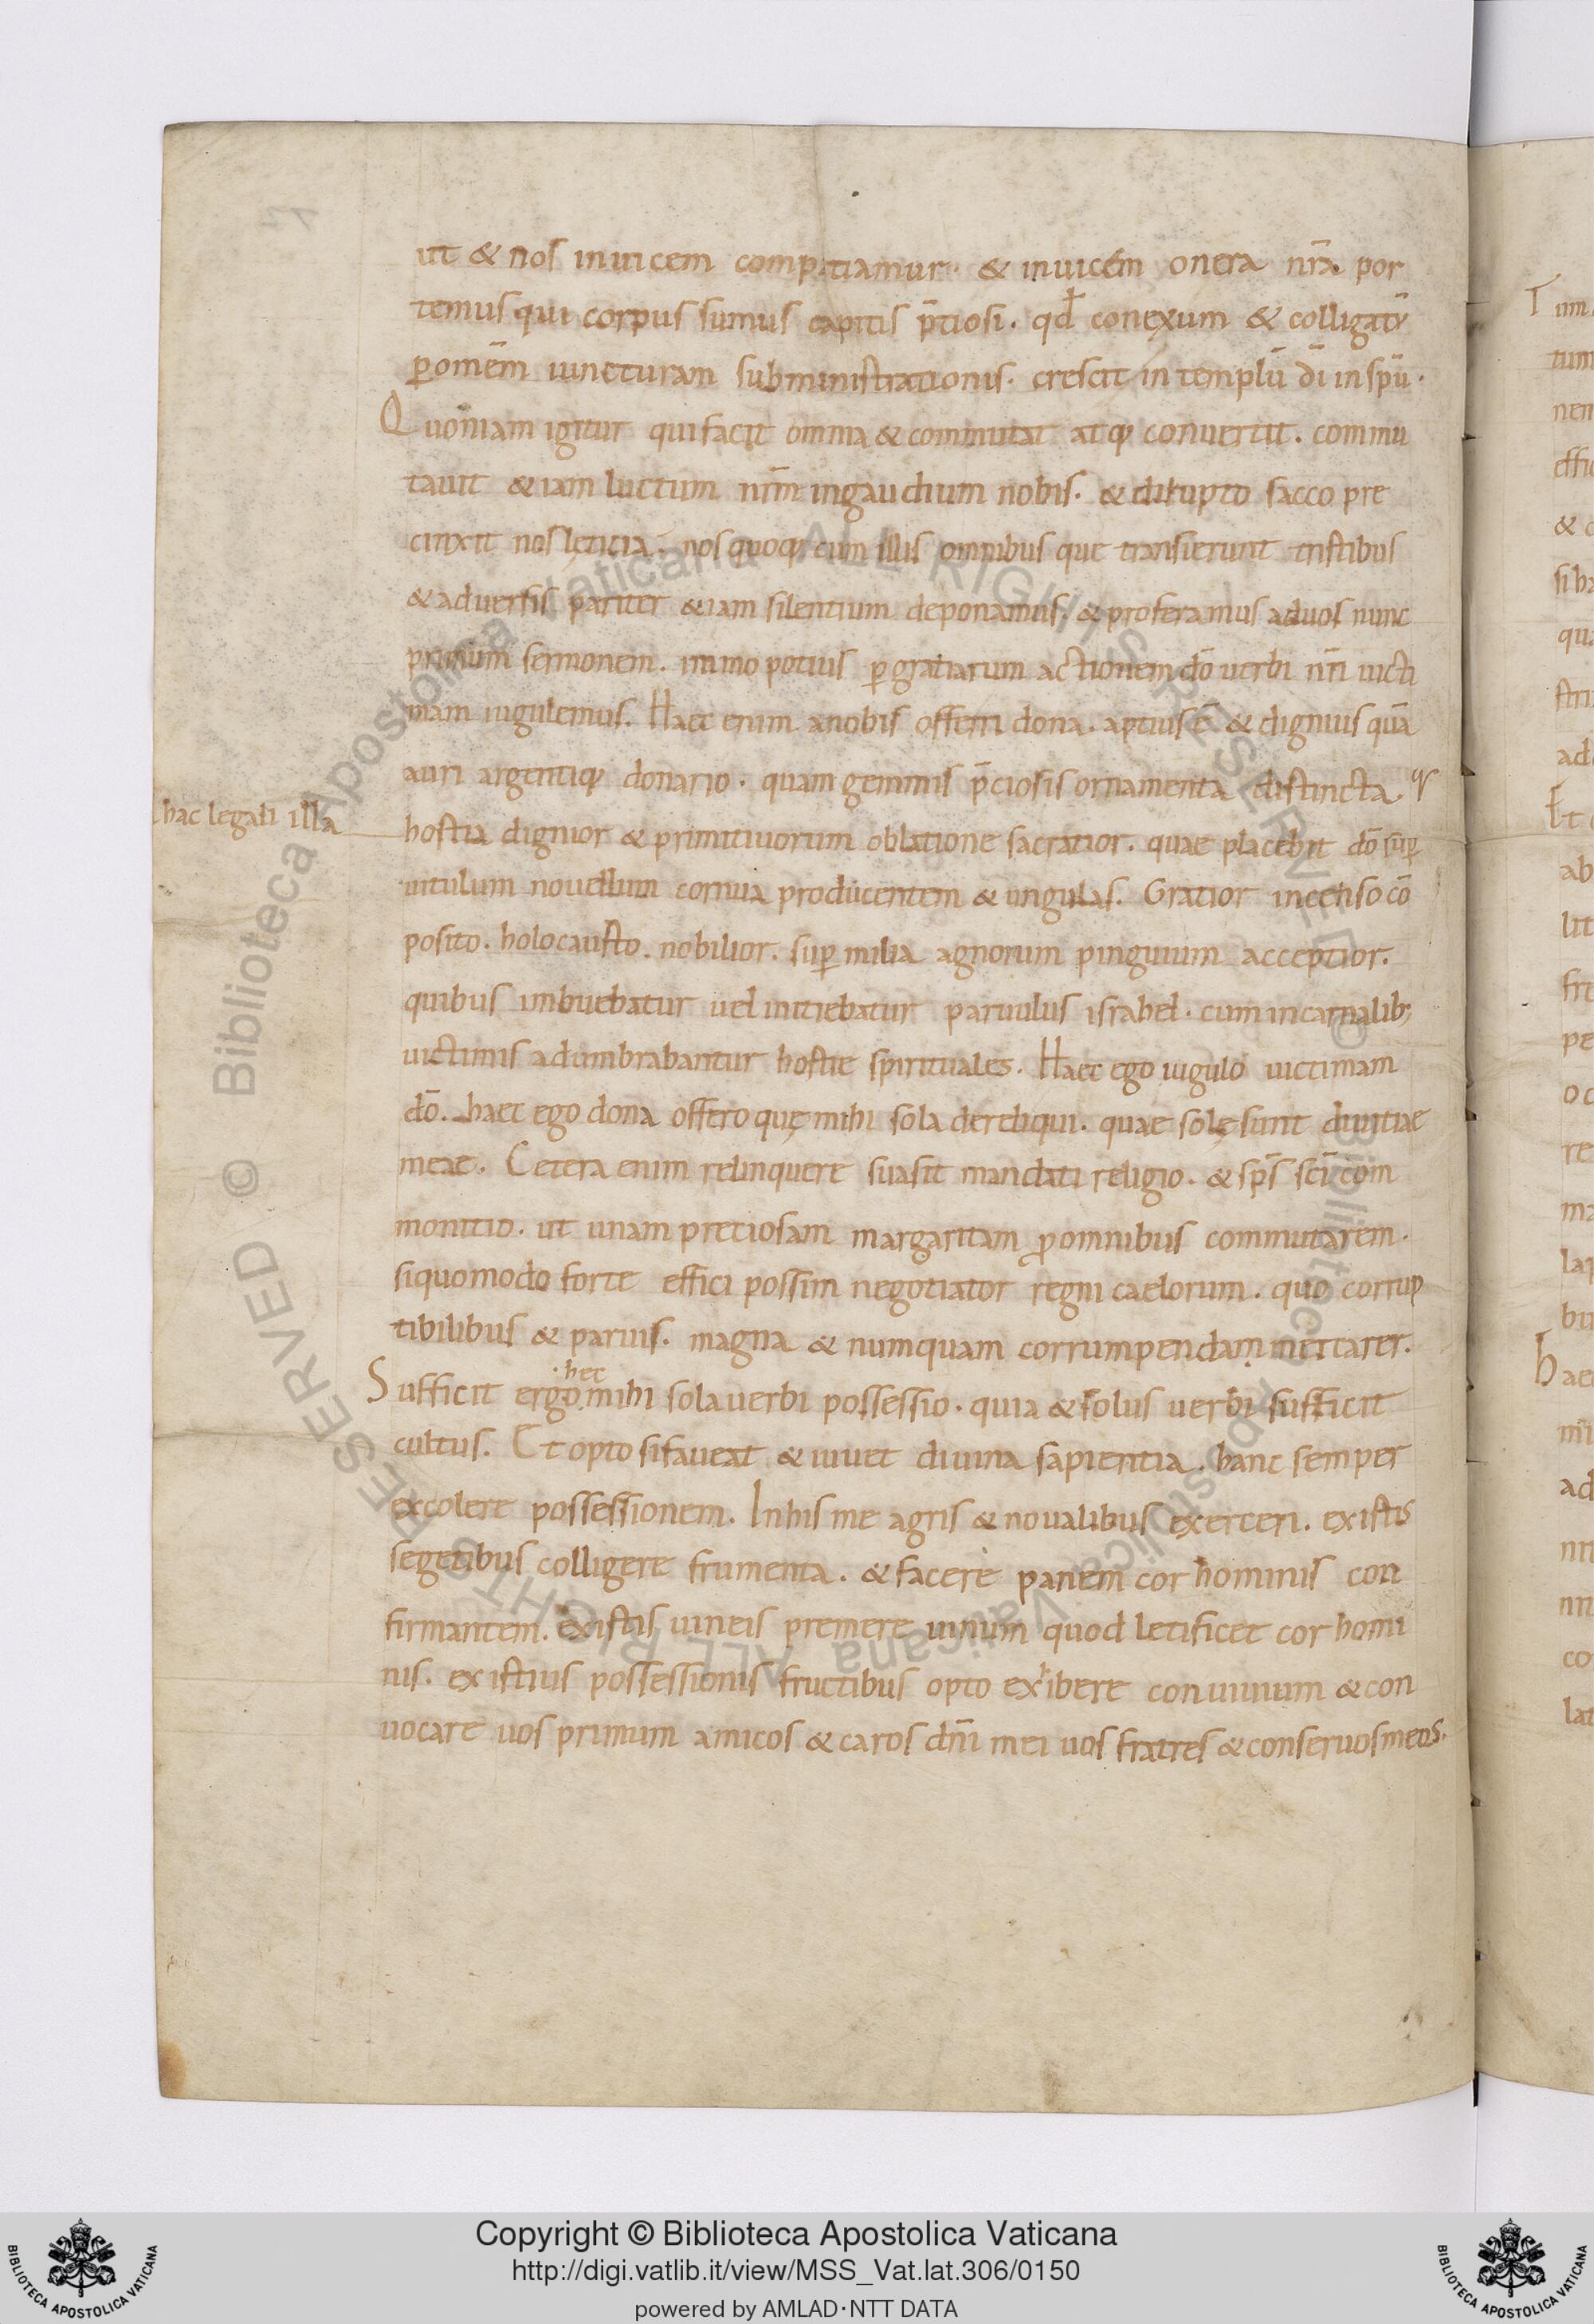 ut & nos inuicem comp,tiamur. & inuicém onera nr̄a. por
temus qui corpus sumus capitis p̄tiosi. qd̄ conexum & colligatū
p̄omēm iuncturam subministrationis. crescit in templū dī in spū.
Quoniam igitur qui facit omnia & commutat atq; conuertit. commu
tauit &iam luctum nr̄m ingaudium nobis. & dirupto sacco pre
cinxit nos lęticia. nos quoq; cum illis omnibus que transierunt tristibus
& aduersis pariter &iam silentium deponamus. & proferamus aduos nunc
primum sermonem. immo potius p̄ gratiarum actionem dō uerbi nr̄i uicti
mam iugulemus. Haec enim anobis offerri dona. aptius ē & dignius quā
auri argentiq; donario. quam gemmis p̄ciosis ornamenta distincta.
hac legali illa
hostia dignior & primitiuorum oblatione sacratior. quae placebit dō sup̄
uitulum nouellum cornua producentem & ungulas. Gratior incenso cō
posito. holocausto. nobilior. sup̄ milia agnorum pinguium acceptior.
quibus imbuebatur uel initiebatur paruulus israhel. cum incarnalib;
uictimis adumbrabantur hostie spirituales. Haec ego iugulo uictimam
dō. haec ego dona offero quę mihi sola dereliqui. quae solę sunt diuitiae
meae. Cetera enim relinquere suasit mandati religio. & sp̄s sc̄i com
monitio. ut unam preciosam margaritam p̄ omnibus commutarem.
siquomodo forte effici possim negotiator regni caelorum. quo corrup
tibilibus & paruis. magna & numquam corrumpendam mercarer.
.hec
Sufficit ergo mihi sola uerbi possessio. quia & solus uerbi sufficit
cultus. Et opto si faueat & iuuet diuina sapientia. hanc semper
excolere possessionem. Inhis me agris & noualibus exerceri. existis
segetibus colligere frumenta. & facere panem cor hominis con
firmantem. existis uineis premere uinum quod letificet cor homi
nis. ex istius possessionis fructibus opto exhibere conuiuium & con
uocare uos primum amicos & caros dn̄i mei uos fratres & conseruos meos.
Copyright © Biblioteca Apostolica Vaticana
http://digi.vatlib.it/view/MSS_Vat.lat.306/0150
powered by AMLAD·NTT DATA